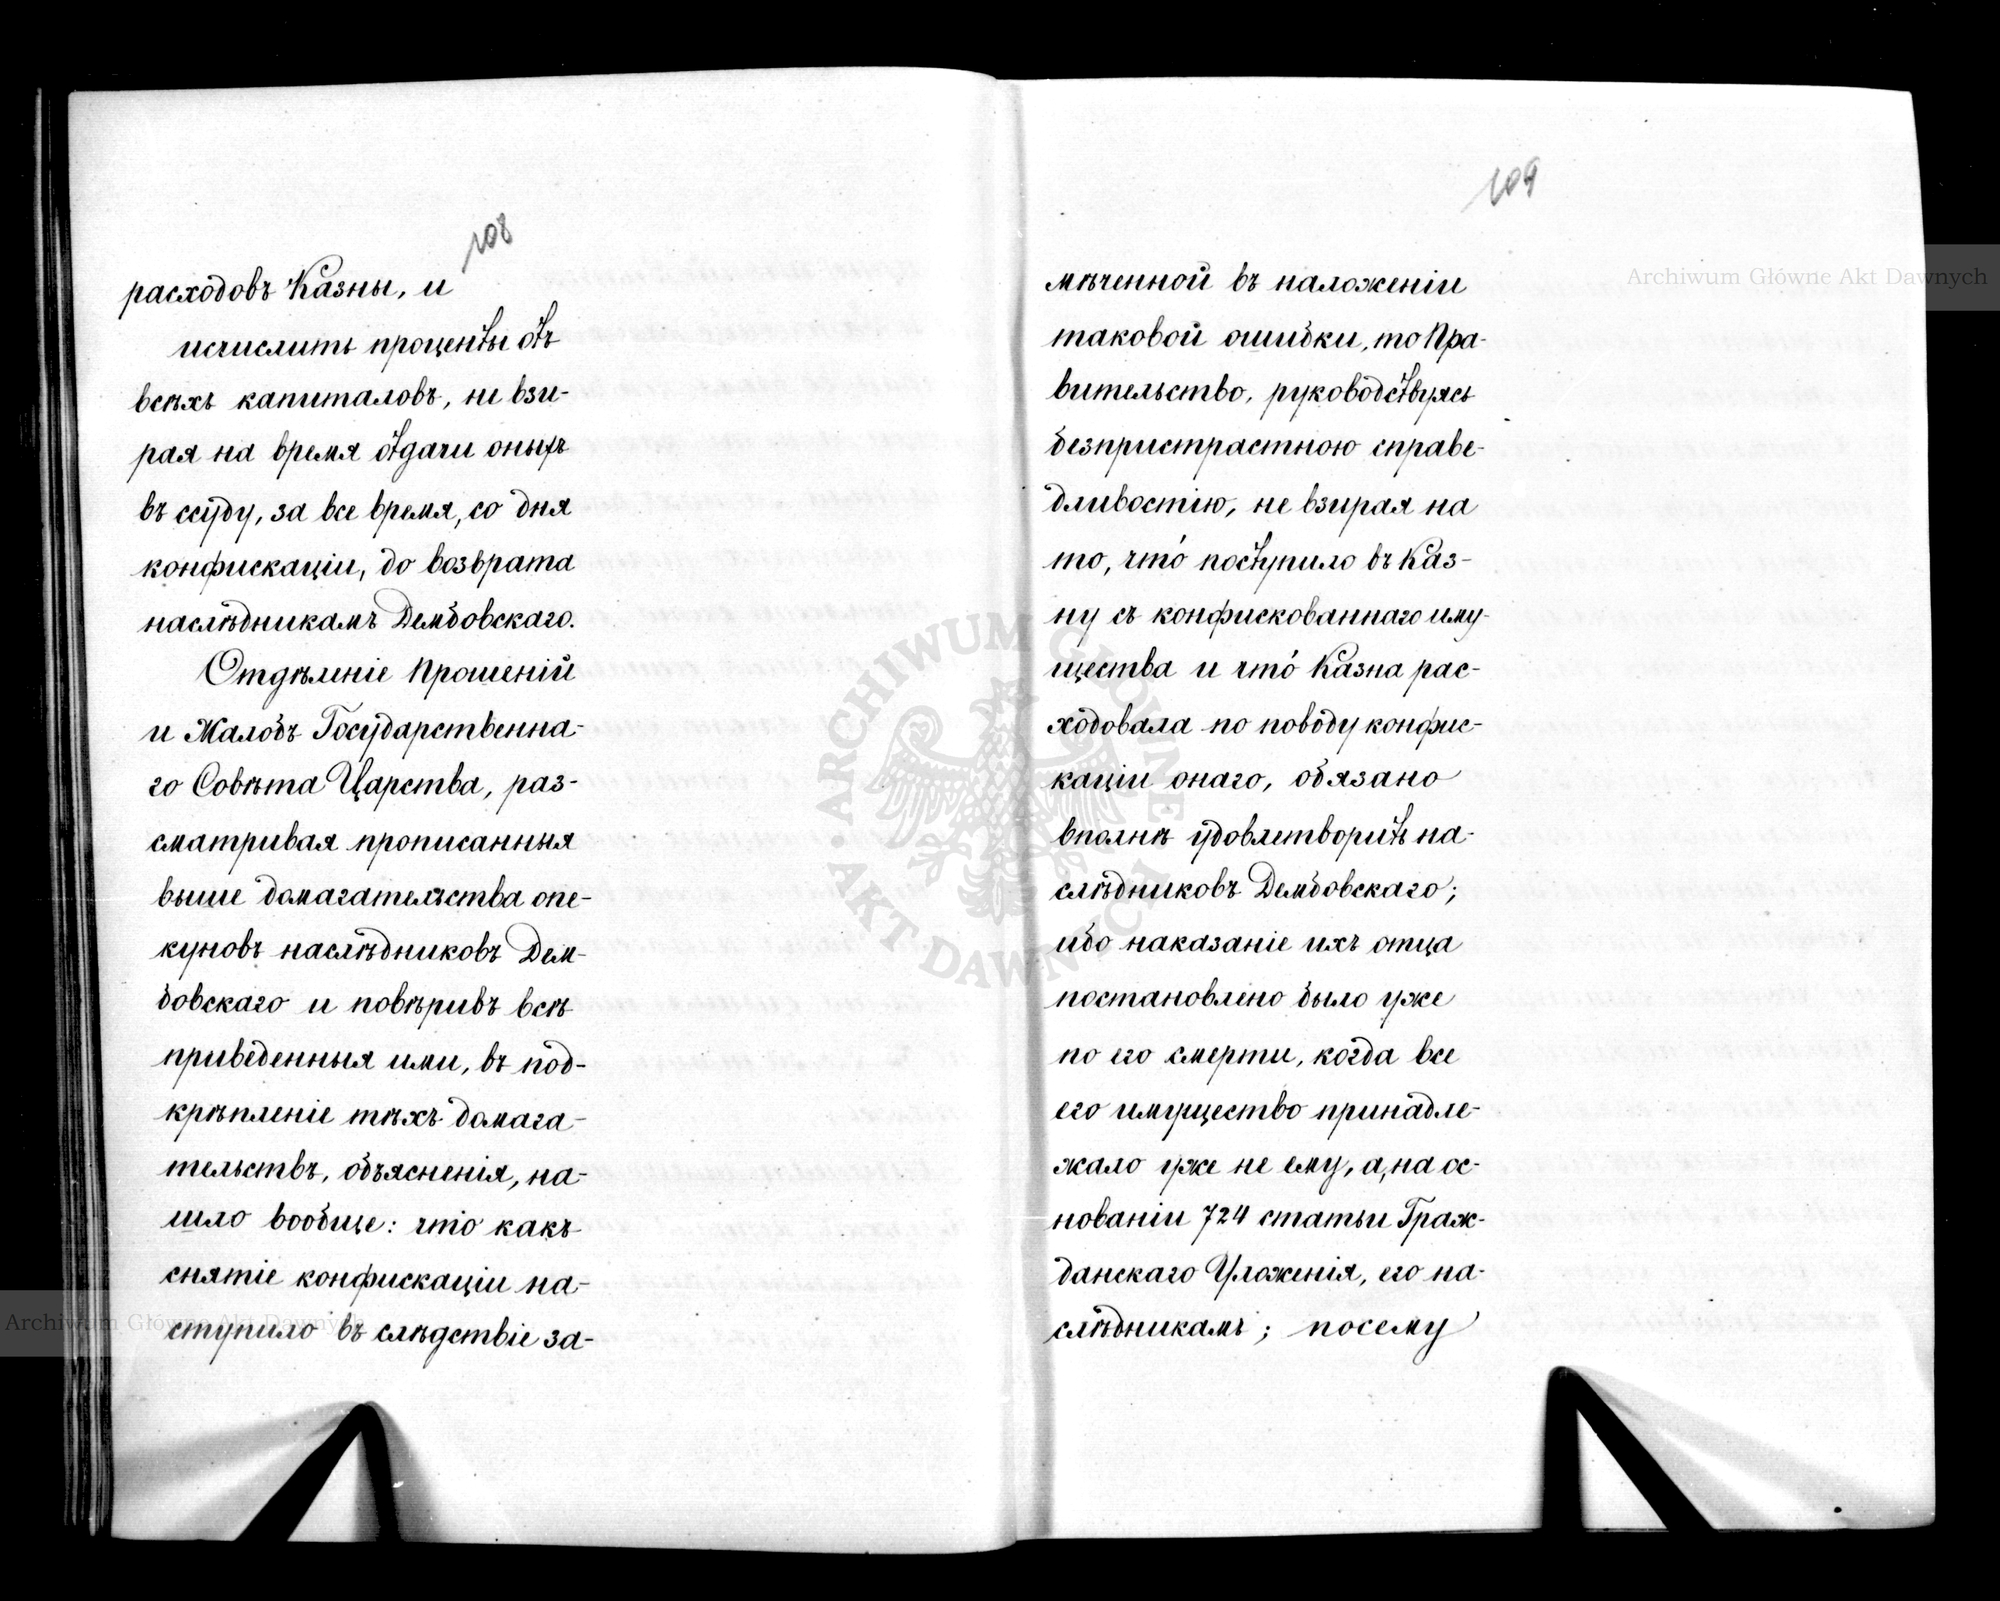 108
расходовъ Казны, и
исчислить проценты отъ
всѣхъ капиталовъ, не взи-
рая на время отдачи оныхъ
въ ссуду, за все время, со дня
конфискаціи, до возврата
наслѣдникамъ Дембовскаго.
Отдѣленіе Прошеній
и Жалобъ Государственна-
го Совѣта Царства, раз-
сматривая прописанныя
выше домагательства опе-
куновъ наслѣдниковъ Дем-
бовскаго и повѣривъ всѣ
приведенныя ими, въ под-
крѣпленіе тѣхъ домага-
тельствъ, объясненія, на-
шло вообще: что какъ
снятіе конфискаціи на-
ступило въ слѣдствіе за-
109
мѣченной въ наложеніи
таковой ошибки, то Пра-
вительство, руководствуясь
безпристрастною справе-
дливостію, не взирая на
то, что́ поступило въ Каз-
ну съ конфискованнаго иму-
щества и что́ Казна рас-
ходовала по поводу конфис-
каціи онаго, обязано
вполнѣ удовлетворить на-
слѣдниковъ Дембовскаго;
ибо наказаніе ихъ отца
постановлено было уже
по его смерти, когда все
его имущество принадле-
жало уже не ему, а, на ос-
нованіи 724 статьи Граж-
данскаго Уложенія, его на-
слѣдникамъ; посему
Archiwum Główne Akt Dawnych
Archiwum Główne Akt Dawnych
ARCHIWUM GŁÓWNE AKT DAWNYCH